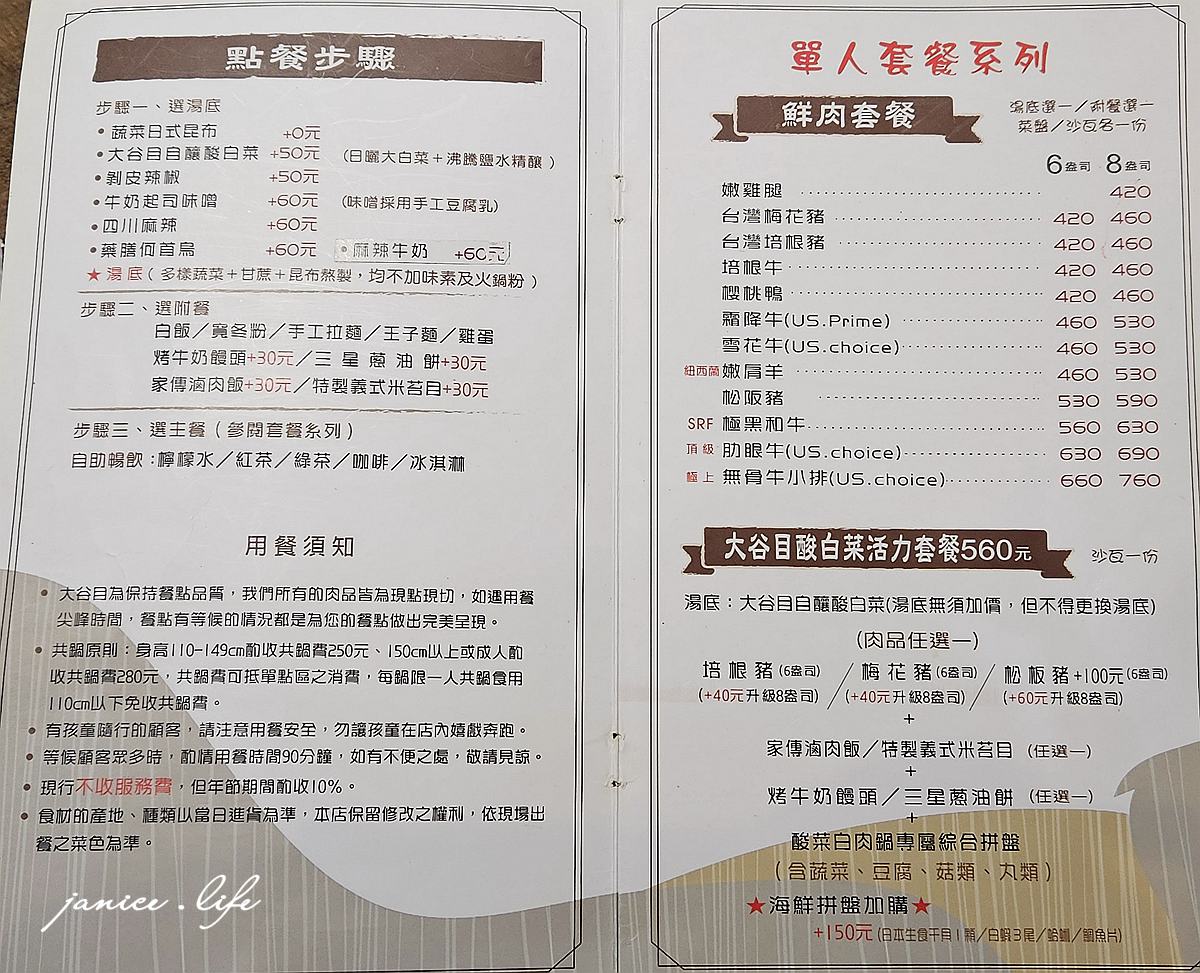 點餐步驟
步驟一、選湯底
•蔬菜日式昆布 +0元
•大谷目自釀酸白菜 +50元 (日曬大白菜+沸騰鹽水精釀)
•剝皮辣椒 +50元
•牛奶起司味噌 +60元 (味噌採用手工豆腐乳)
•四川麻辣 +60元
•藥膳何首烏 +60元 •麻辣牛奶 +60元
★湯底(多樣蔬菜+甘蔗+昆布熬製,均不加味素及火鍋粉)
步驟二、選附餐
白飯/寬冬粉/手工拉麵/王子麵/雞蛋
烤牛奶饅頭+30元/三星蔥油餅+30元
家傳滷肉飯+30元/特製義式米苔目+30元
步驟三、選主餐(參閱套餐系列)
自助暢飲:檸檬水/紅茶/綠茶/咖啡/冰淇淋
用餐須知
•大谷目為保持餐點品質,我們所有的肉品皆為現點現切,如遇用餐
尖峰時間,餐點有等候的情況都是為您的餐點做出完美呈現。
•共鍋原則:身高110-149cm酌收共鍋費250元、150cm以上或成人酌
收共鍋費280元,共鍋費可抵單點區之消費,每鍋限一人共鍋食用
110cm以下免收共鍋費。
•有孩童隨行的顧客,請注意用餐安全,勿讓孩童在店內嬉戲奔跑。
•等候顧客眾多時,酌情用餐時間90分鐘,如有不便之處,敬請見諒。
•現行不收服務費,但年節期間酌收10%。
•食材的產地、種類以當日進貨為準,本店保留修改之權利,依現場出
餐之菜色為準。
janice.life
單人套餐系列
鮮肉套餐
湯底選一/附餐選一
菜盤/沙瓦各一份
6盎司 8盎司
嫩雞腿 420
台灣梅花豬 420 460
台灣培根豬 420 460
培根牛 420 460
櫻桃鴨 420 460
霜降牛(US.Prime) 460 530
雪花牛(US.choice) 460 530
紐西蘭嫩肩羊 460 530
松阪豬 530 590
SRF 極黑和牛 560 630
頂級 肋眼牛(US.choice) 630 690
極上 無骨牛小排(US.choice) 660 760
大谷目酸白菜活力套餐560元 沙瓦一份
湯底:大谷目自釀酸白菜(湯底無須加價,但不得更換湯底)
(肉品任選一)
培根豬(6盎司)/梅花豬(6盎司)/松板豬+100元(6盎司)
(+40元升級8盎司) (+40元升級8盎司) (+60元升級8盎司)
+
家傳滷肉飯/特製義式米苔目 (任選一)
+
烤牛奶饅頭/三星蔥油餅 (任選一)
+
酸菜白肉鍋專屬綜合拼盤
(含蔬菜、豆腐、菇類、丸類)
★海鮮拼盤加購★
+150元(日本生食干貝1顆/白蝦3尾/蛤蜊/鯛魚片)